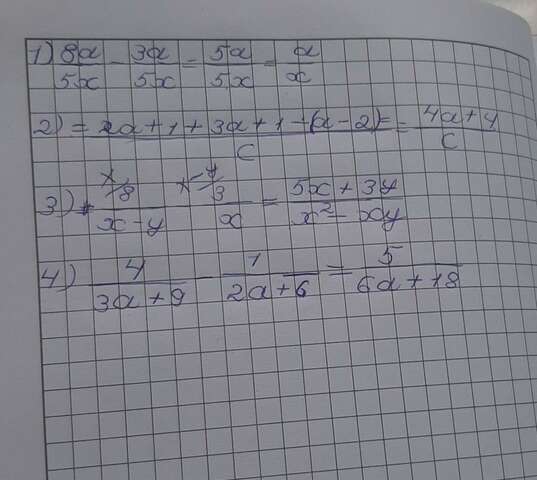 1) 8a/5x - 3a/5x = 5a/5x = a/x
2) = 2a+1+3a+1-(a-2)= / c = 4a+4 / c
3) x/8 / x-y x -y/3 / x = 5x+3y / x²-xy
4) 4 / 3a+9 - 1 / 2a+6 = 5 / 6a+18